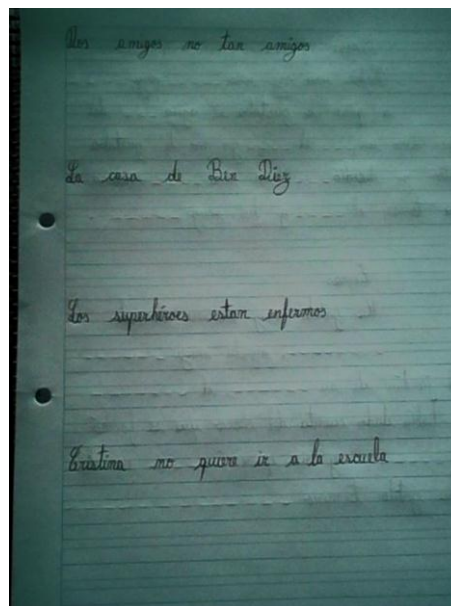 Dos amigos no tan amigos
La casa de Ben Diez
Los superhéroes estan enfermos
Cristina no quiere ir a la escuela